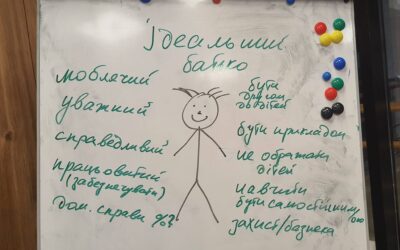 Ідеальний
батько
люблячий
уважний
справедливий
працьовитий
(забезпечувати)
дом. справи
бути
другом
дітей
бути прикладом
не ображати
дітей
навчити
бути самостійним/ою
захист/безпека